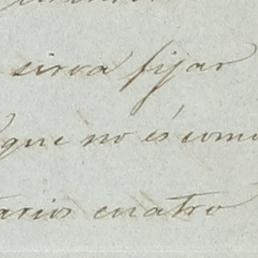 sirva fijar
que no és como
tarios cuatro